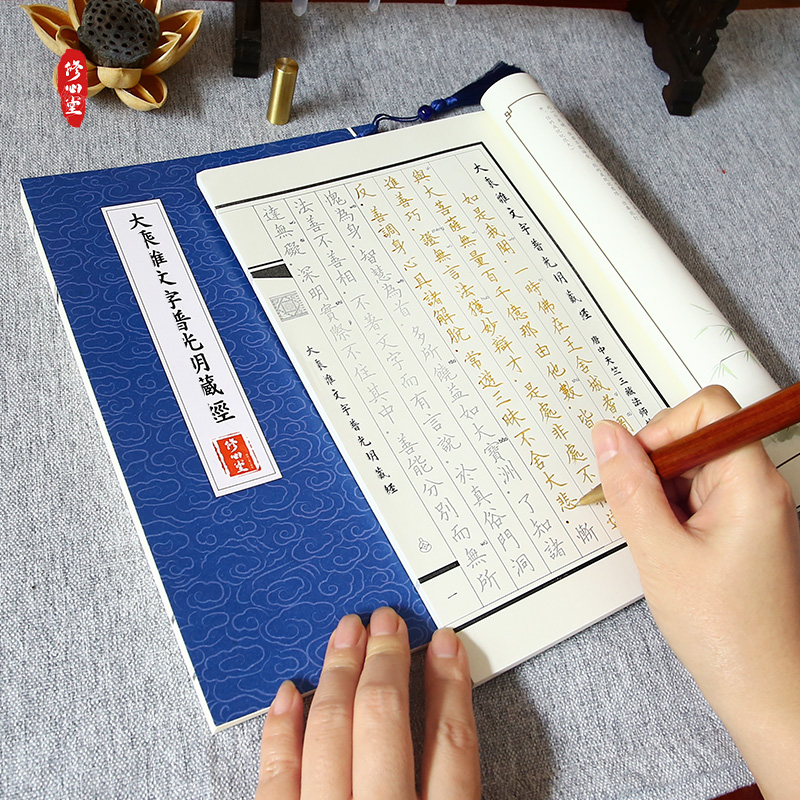 修心堂
大乘離文字普光明藏經
修心堂
大乘離文字普光明藏經 唐中天竺三藏法師
如是我聞。一時佛在王舍城耆
與大菩薩無量百千億那由他數。皆
進善巧。證無言法。獲妙辯才。是處非處。不
反。善調身心。具諸解脫。常遊三昧。不舍大悲。慚
愧為身。智慧為首。多所饒益。如大寶洲。了知諸
法善不善相。不著文字而有言說。於真俗門。洞
達無礙。深明實際。不住其中。善能分別而無所
大乘離文字普光明藏經
一